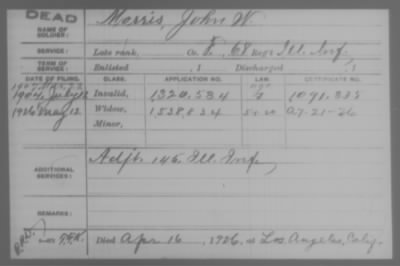 DEAD
NAME OF SOLDIER: Morris, John W.
SERVICE: Late rank, Co. 68 Reg't Ill. Inf.
TERM OF SERVICE: Enlisted , 1 Discharged , 1
DATE OF FILING. CLASS. APPLICATION NO. LAW. CERTIFICATE NO.
1904 July 12 Invalid, 1320.534 1091.
1926 May 12 Widow, 1538834 A-7-21-26
Minor,
ADDITIONAL SERVICES: Adjt. 145 Ill. Inf.
REMARKS:
Died Apr 16, 1926, at Los Angeles, Calif.